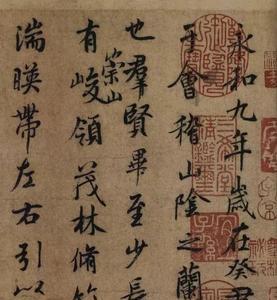 永和九年歲在癸丑
于會稽山陰之蘭
也羣賢畢至少長
有崇山峻領茂林脩竹
湍暎帶左右引以